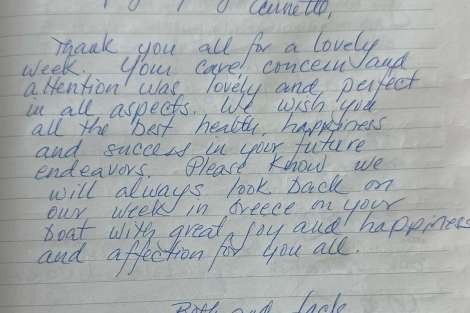 Annette,
Thank you all for a lovely
week. Your care, concern and
attention was lovely and perfect
in all aspects. We wish you
all the best health, happiness
and success in your future
endeavors. Please know we
will always look back on
our week in Greece on your
boat with great joy and happiness
and affection for you all.
and Jack